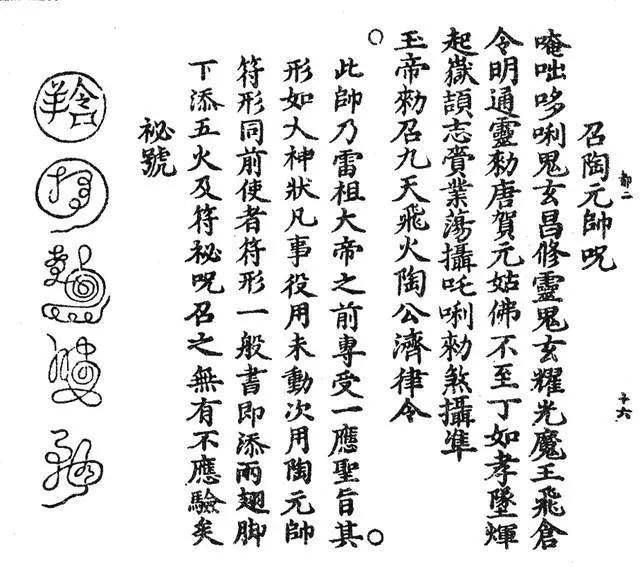 十六
召陶元帥呪
唵咄哆唎鬼玄昌修靈鬼玄耀光魔王飛倉
令明通靈勑唐賀元姑佛不至丁如孝墜煇
起嶽頡志賷業蕩攝吒唎勑煞攝準
○玉帝勑召九天飛火陶公濟律令○
此帥乃雷祖大帝之前專受一應聖旨其
形如大神狀凡事役用未動次用陶元帥
符形同前使者符形一般書即添兩翅脚
下添五火及符祕呪召之無有不應驗矣
祕號